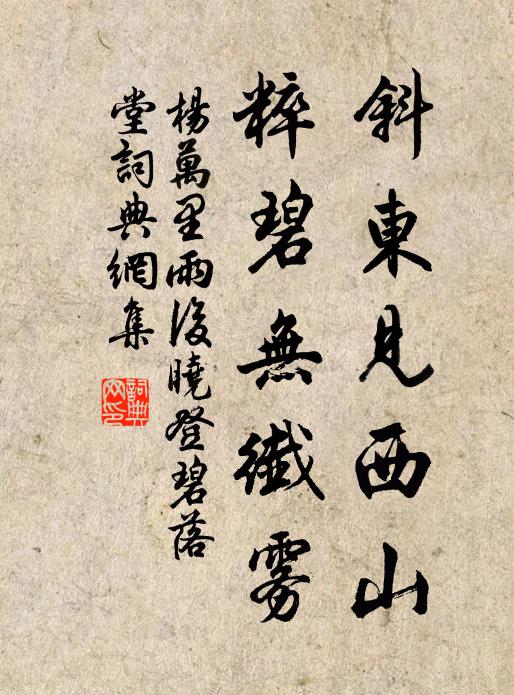 斜東見西山
粹碧無纖雰
楊萬里雨後曉登碧落
堂詞典網集
詞典
网印